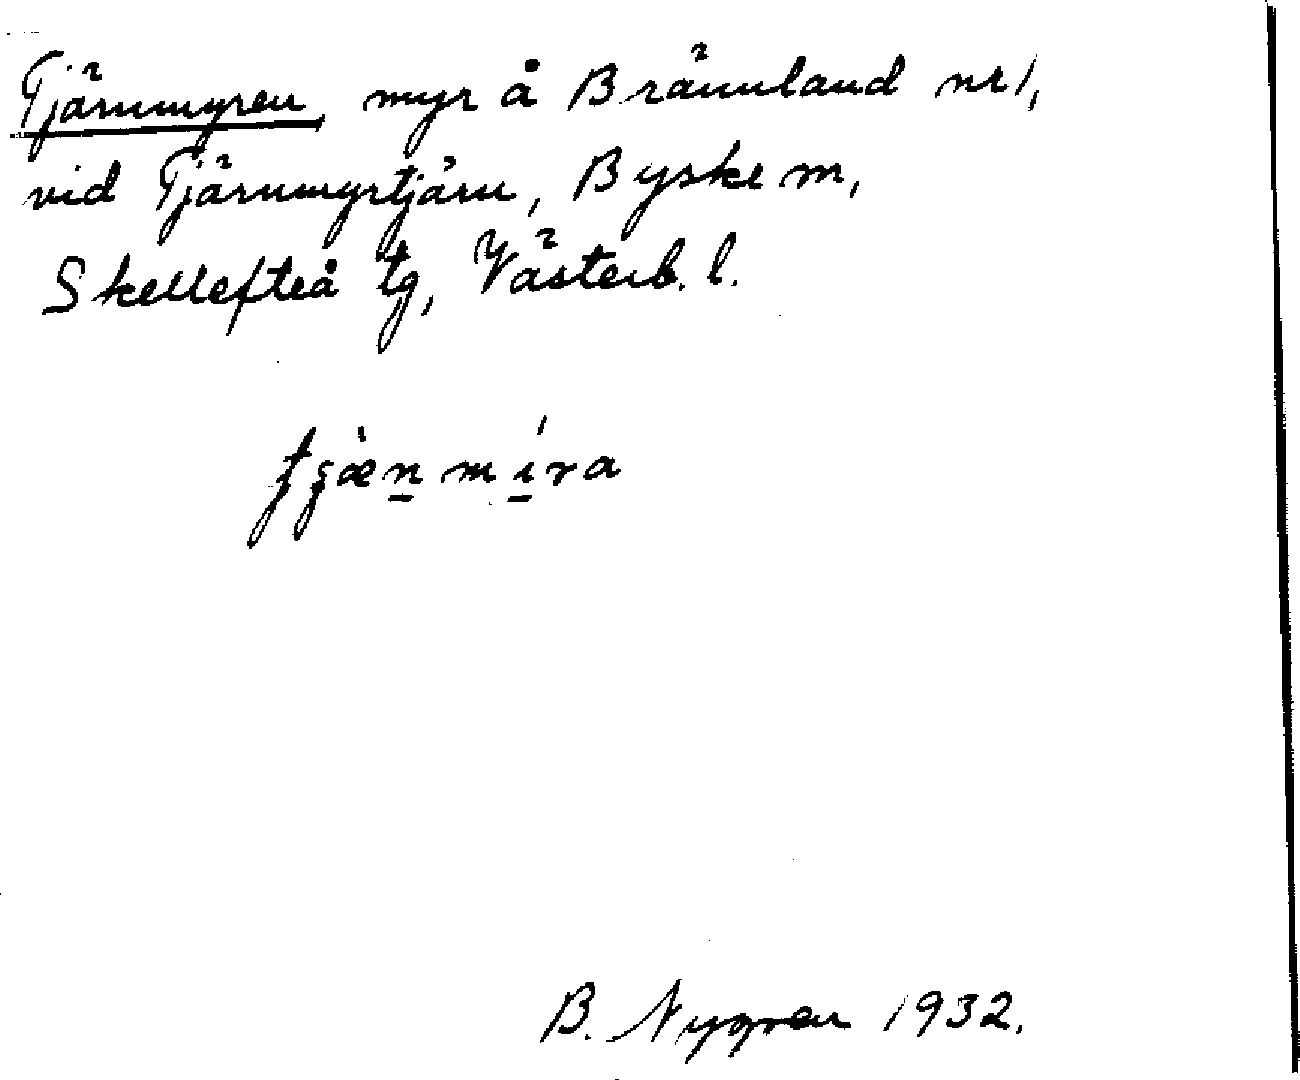 Tjärnmyren, myr å Brännland nr 1,
vid Tjärnmyrtjärn, Byske sn,
Skellefteå tg, Västerb. l.
B. Nygren 1932.